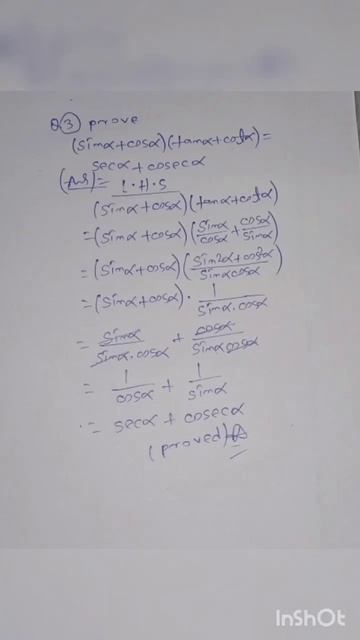 Q③ prove
(sinα+cosα)(tanα+cotα)=
secα+cosecα
(Ans)= L.H.S
(sinα+cosα)(tanα+cotα)
=(sinα+cosα)(sinα/cosα+cosα/sinα)
=(sinα+cosα)(sin²α+cos²α/sinαcosα)
=(sinα+cosα)·1/sinα.cosα
= sinα/sinα.cosα + cosα/sinαcosα
= 1/cosα + 1/sinα
∴= secα+cosecα
(proved)
InShOt